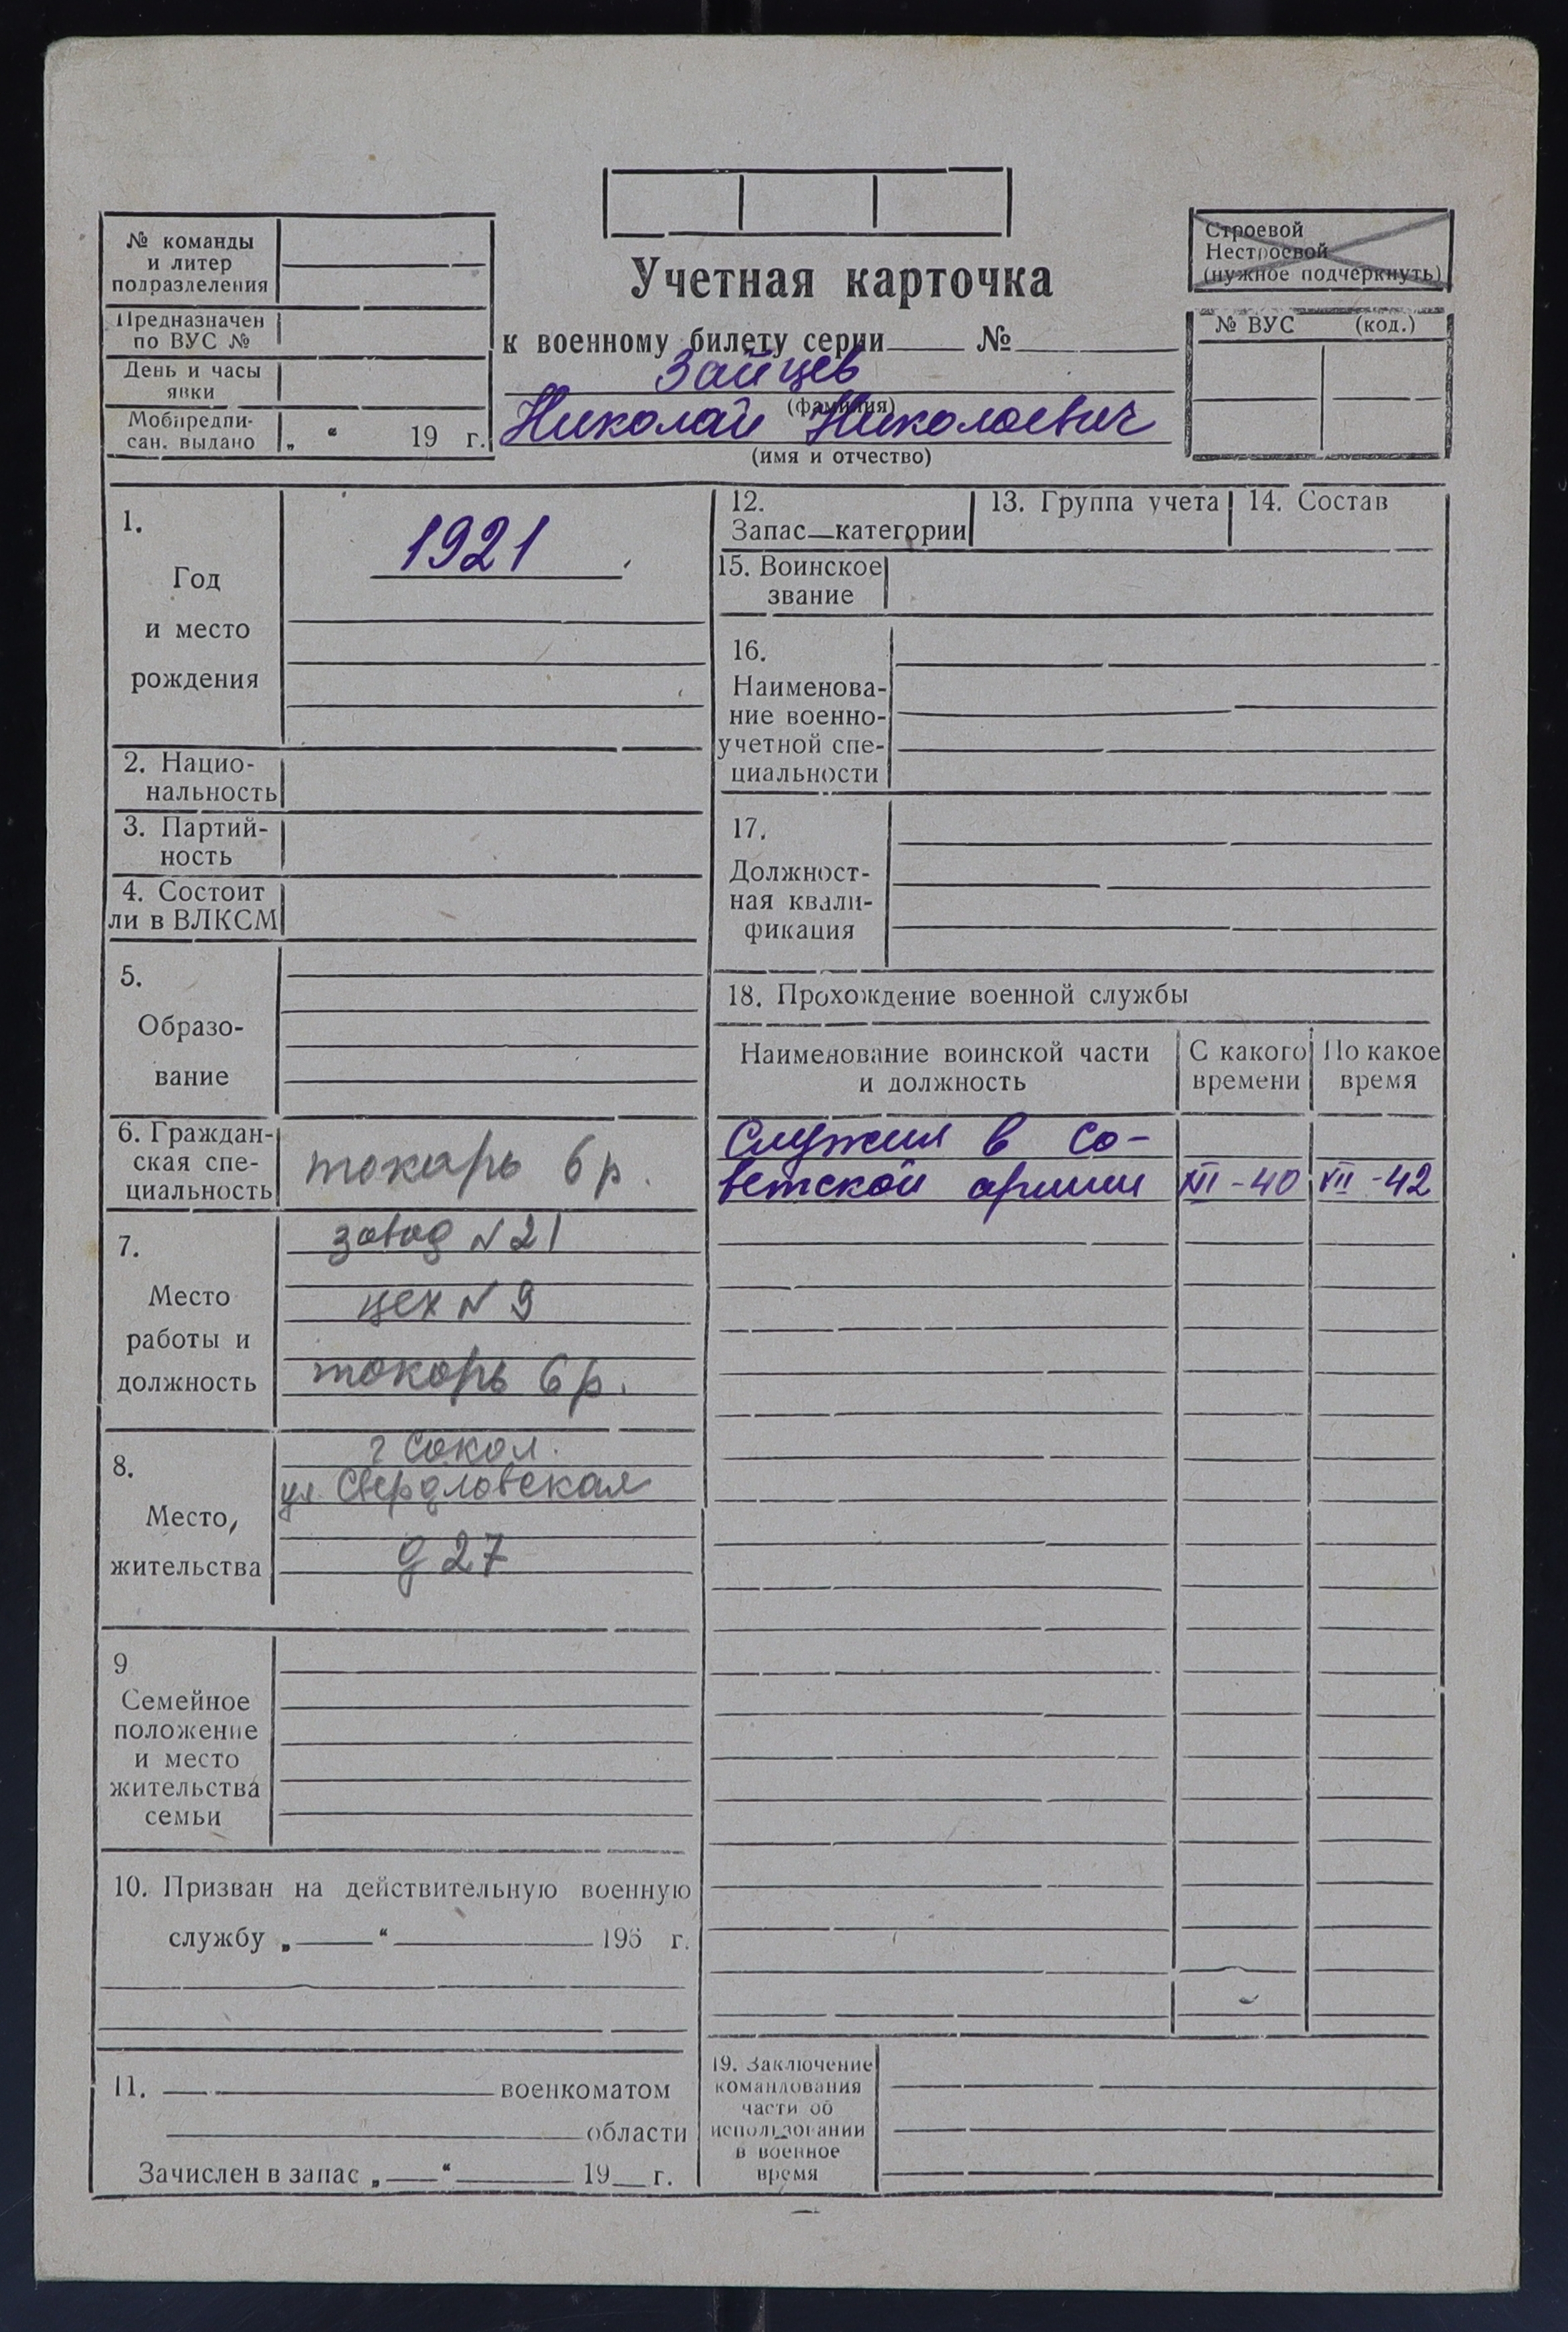 № команды
и литер
подразделения
Предназначен
по ВУС №
День и часы
явки
Мобпредпи-
сан. выдано „ “ 19 г.
Учетная карточка
к военному билету серии № 
Зайцев
(фамилия)
Николай Николаевич
(имя и отчество)
Строевой
Нестроевой
(нужное подчеркнуть)
№ ВУС (код.)
1.
Год
и место
рождения
1921
2. Нацио-
нальность
3. Партий-
ность
4. Состоит
ли в ВЛКСМ
5.
Образо-
вание
6. Граждан-
ская спе-
циальность
токарь 6 р.
7.
Место
работы и
должность
завод N 21
цех N 9
токарь 6 р.
8.
Место
жительства
г Сокол.
ул. Свердловская
д 27
9
Семейное
положение
и место
жительства
семьи
10. Призван на действительную военную
службу „ “ 195 г.
11. военкоматом
области
Зачислен в запас „ “ 19 г.
12.
Запас—категории
13. Группа учета
14. Состав
15. Воинское
звание
16.
Наименова-
ние военно-
учетной спе-
циальности
17.
Должност-
ная квали-
фикация
18. Прохождение военной службы
Наименование воинской части
и должность
С какого
времени
По какое
время
Служил в Со-
ветской армии XII-40 VII-42
19. Заключение
командования
части об
использовании
в военное
время